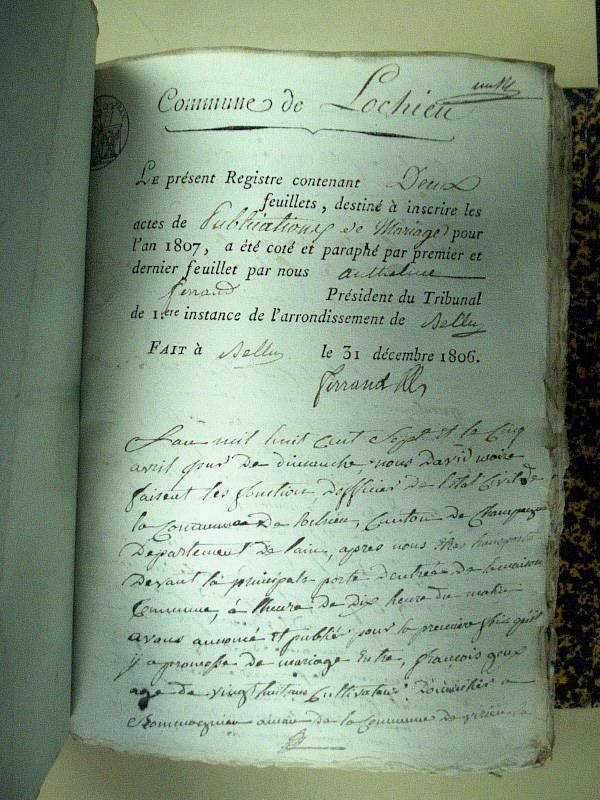 Commune de Lochieu
LE présent Registre contenant Deux
feuillets, destiné à inscrire les
actes de Publications de Mariage pour
l'an 1807, a été coté et paraphé par premier et
dernier feuillet par nous anthelme
ferrand Président du Tribunal
de 1.ère instance de l'arrondissement de Belley
FAIT à Belley le 31 décembre 1806.
ferrand
L'an mil huit cent Sept et le Cinq
avril jour de dimanche, nous David maire
faisant les fonction, D'officier de L'état Civil de
la Commune de Lochieu, Canton de Champagne
Departement de L'ain, apres nous être transporté
Devant la principale porte d'entrée de la maison
Commune, à l'heure de Dix heure du matin
avons annoncé et publié pour la premiere fois qu'il
y a promesse de mariage Entre, françois goux
age de vingt huit ans Cultivateur Domicilié a
de la Commune de virieu le